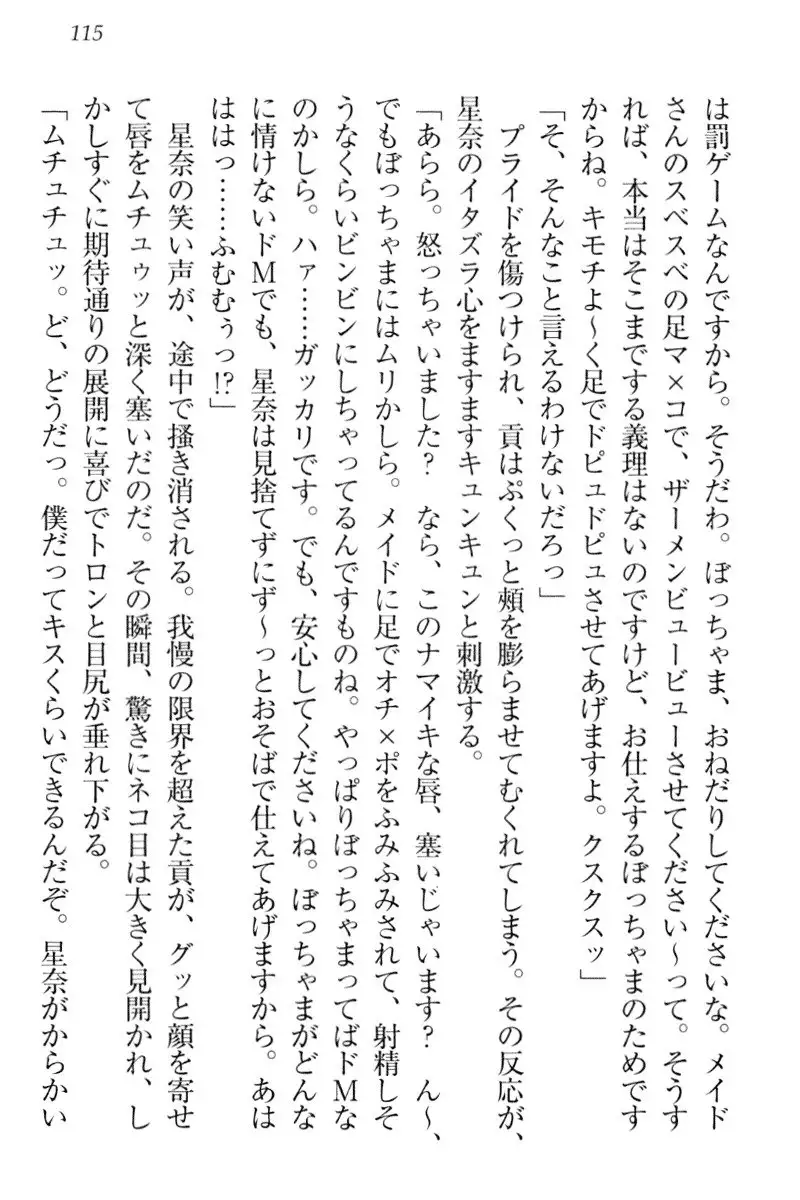 115
は罰ゲームなんですから。そうだわ。ぼっちゃま、おねだりしてくださいな。メイド
さんのスベスベの足マ×コで、ザーメンビュービューさせてください～って。そうす
れば、本当はそこまでする義理はないのですけど、お仕えするぼっちゃまのためです
からね。キモチよ～く足でドピュドピュさせてあげますよ。クスクスッ」
「そ、そんなこと言えるわけないだろっ」
　プライドを傷つけられ、貢はぷくっと頬を膨らませてむくれてしまう。その反応が、
星奈のイタズラ心をますますキュンキュンと刺激する。
「あらら。怒っちゃいました？　なら、このナマイキな唇、塞いじゃいます？　ん～、
でもぼっちゃまにはムリかしら。メイドに足でオチ×ポをふみふみされて、射精しそ
うなくらいビンビンにしちゃってるんですものね。やっぱりぼっちゃまってばドMな
のかしら。ハァ……ガッカリです。でも、安心してくださいね。ぼっちゃまがどんな
に情けないドMでも、星奈は見捨てずにず～っとおそばで仕えてあげますから。あは
ははっ……ふむむぅっ!?」
　星奈の笑い声が、途中で掻き消される。我慢の限界を超えた貢が、グッと顔を寄せ
て唇をムチュゥッと深く塞いだのだ。その瞬間、驚きにネコ目は大きく見開かれ、し
かしすぐに期待通りの展開に喜びでトロンと目尻が垂れ下がる。
「ムチュチュッ。ど、どうだっ。僕だってキスくらいできるんだぞ。星奈がからかい